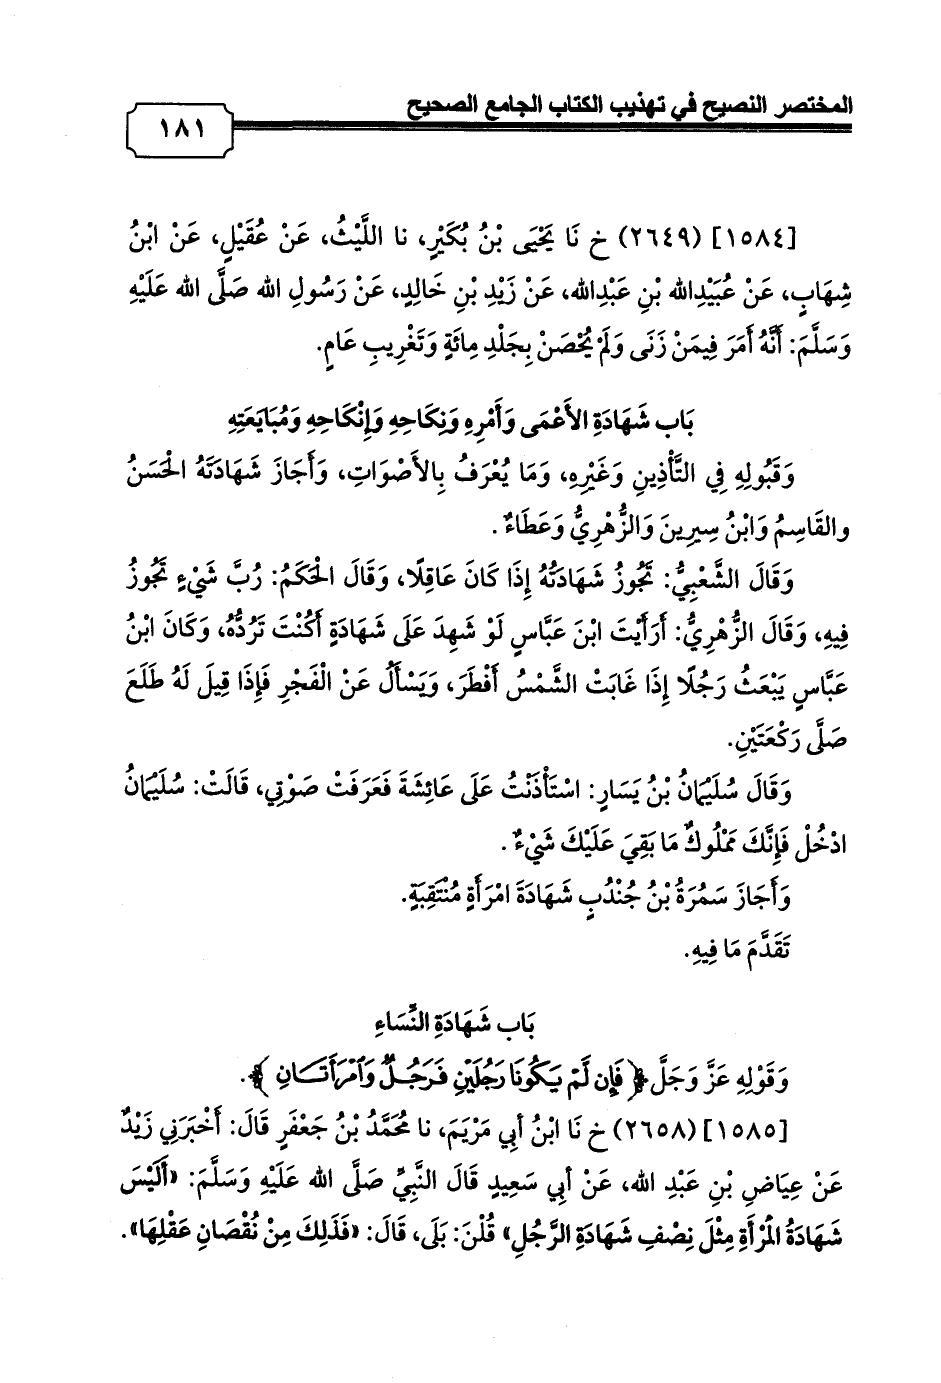 المختصر النصيح في تهذيب الكتاب الجامع الصحيح
١٨١
[١٥٨٤] (٢٦٤٩) خ نَا يَحْيَى بْنُ بُكَيْرٍ، نا اللَّيْثُ، عَنْ عُقَيْلٍ، عَنْ ابْنُ
شِهَابٍ، عَنْ عُبَيْدِالله بْنِ عَبْدِالله، عَنْ زَيْدِ بْنِ خَالِدٍ، عَنْ رَسُولِ الله صَلَّى الله عَلَيْهِ
وَسَلَّمَ: أَنَّهُ أَمَرَ فِيمَنْ زَنَى وَلَمْ يُحْصَنْ بِجَلْدِ مِائَةٍ وَتَغْرِيبِ عَامٍ.
بَاب شَهَادَةِ الأَعْمَى وَأَمْرِهِ وَنِكَاحِهِ وَإِنْكَاحِهِ وَمُبَايَعَتِهِ
وَقَبُولِهِ فِي التَّأْذِينِ وَغَيْرِهِ، وَمَا يُعْرَفُ بِالأَصْوَاتِ، وَأَجَازَ شَهَادَتَهُ الْحَسَنُ
والقَاسِمُ وَابْنُ سِيرِينَ وَالزُّهْرِيُّ وَعَطَاءٌ.
وَقَالَ الشَّعْبِيُّ: تَجُوزُ شَهَادَتُهُ إِذَا كَانَ عَاقِلًا، وَقَالَ الْحَكَمُ: رُبَّ شَيْءٍ تَجُوزُ
فِيهِ، وَقَالَ الزُّهْرِيُّ: أَرَأَيْتَ ابْنَ عَبَّاسٍ لَوْ شَهِدَ عَلَى شَهَادَةٍ أَكُنْتَ تَرُدُّهُ، وَكَانَ ابْنُ
عَبَّاسٍ يَبْعَثُ رَجُلًا إِذَا غَابَتْ الشَّمْسُ أَفْطَرَ، وَيَسْأَلُ عَنْ الْفَجْرِ فَإِذَا قِيلَ لَهُ طَلَعَ
صَلَّى رَكْعَتَيْنِ.
وَقَالَ سُلَيْمَانُ بْنُ يَسَارٍ: اسْتَأْذَنْتُ عَلَى عَائِشَةَ فَعَرَفَتْ صَوْتِي، قَالَتْ: سُلَيْمَانُ
ادْخُلْ فَإِنَّكَ مَمْلُوكٌ مَا بَقِيَ عَلَيْكَ شَيْءٌ.
وَأَجَازَ سَمُرَةُ بْنُ جُنْدُبٍ شَهَادَةَ امْرَأَةٍ مُنْتَقِبَةٍ.
تَقَدَّمَ مَا فِيهِ.
بَاب شَهَادَةِ النِّسَاءِ
وَقَوْلِهِ عَزَّ وَجَلَّ ﴿فَإِن لَّمْ يَكُونَا رَجُلَيْنِ فَرَجُلٌ وَٱمْرَأَتَانِ﴾.
[١٥٨٥] (٢٦٥٨) خ نَا ابْنُ أبِي مَرْيَمَ، نا مُحَمَّدُ بْنُ جَعْفَرٍ قَالَ: أَخْبَرَنِي زَيْدٌ
عَنْ عِيَاضِ بْنِ عَبْدِ الله، عَنْ أبِي سَعِيدٍ قَالَ النَّبِيُّ صَلَّى الله عَلَيْهِ وَسَلَّمَ: «أَلَيْسَ
شَهَادَةُ الْمَرْأَةِ مِثْلَ نِصْفِ شَهَادَةِ الرَّجُلِ» قُلْنَ: بَلَى، قَالَ: «فَذَلِكَ مِنْ نُقْصَانِ عَقْلِهَا».